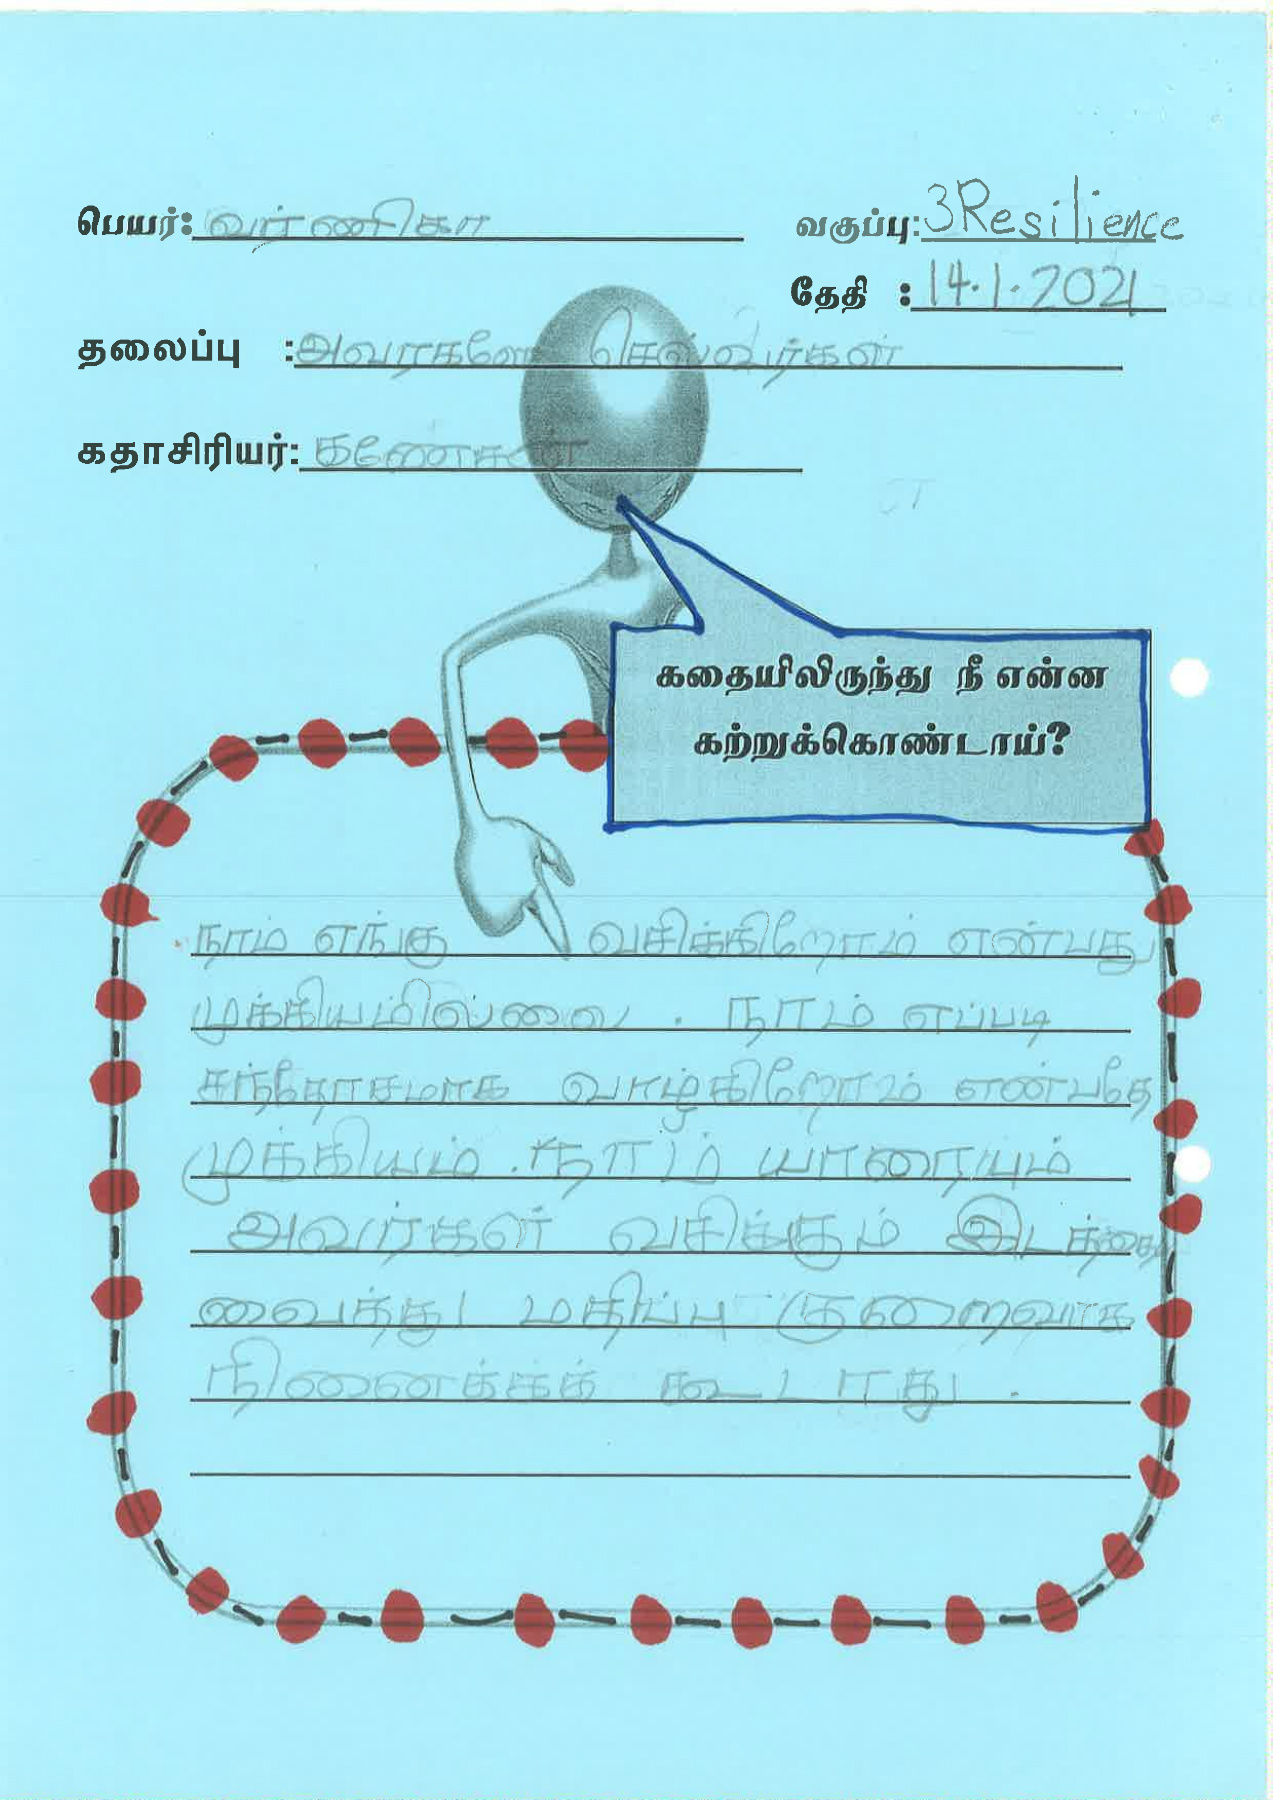 பெயர்: வர்ணிகா வகுப்பு: 3Resilience
தேதி : 14.1.2021
தலைப்பு : அவரகளே செல்வர்கள்
கதாசிரியர்: கணேசன்
கதையிலிருந்து நீ என்ன
கற்றுக்கொண்டாய்?
நாம் எங்கு வசிக்கிறோம் என்பது
முக்கியமில்லை . நாம் எப்படி
சந்தோசமாக வாழ்கிறோம் என்பதே
முக்கியம் . நாம் யாரையும்
அவர்கள் வசிக்கும் இடத்தை
வைத்து மதிப்பு குறைவாக
நினைக்கக் கூடாது .